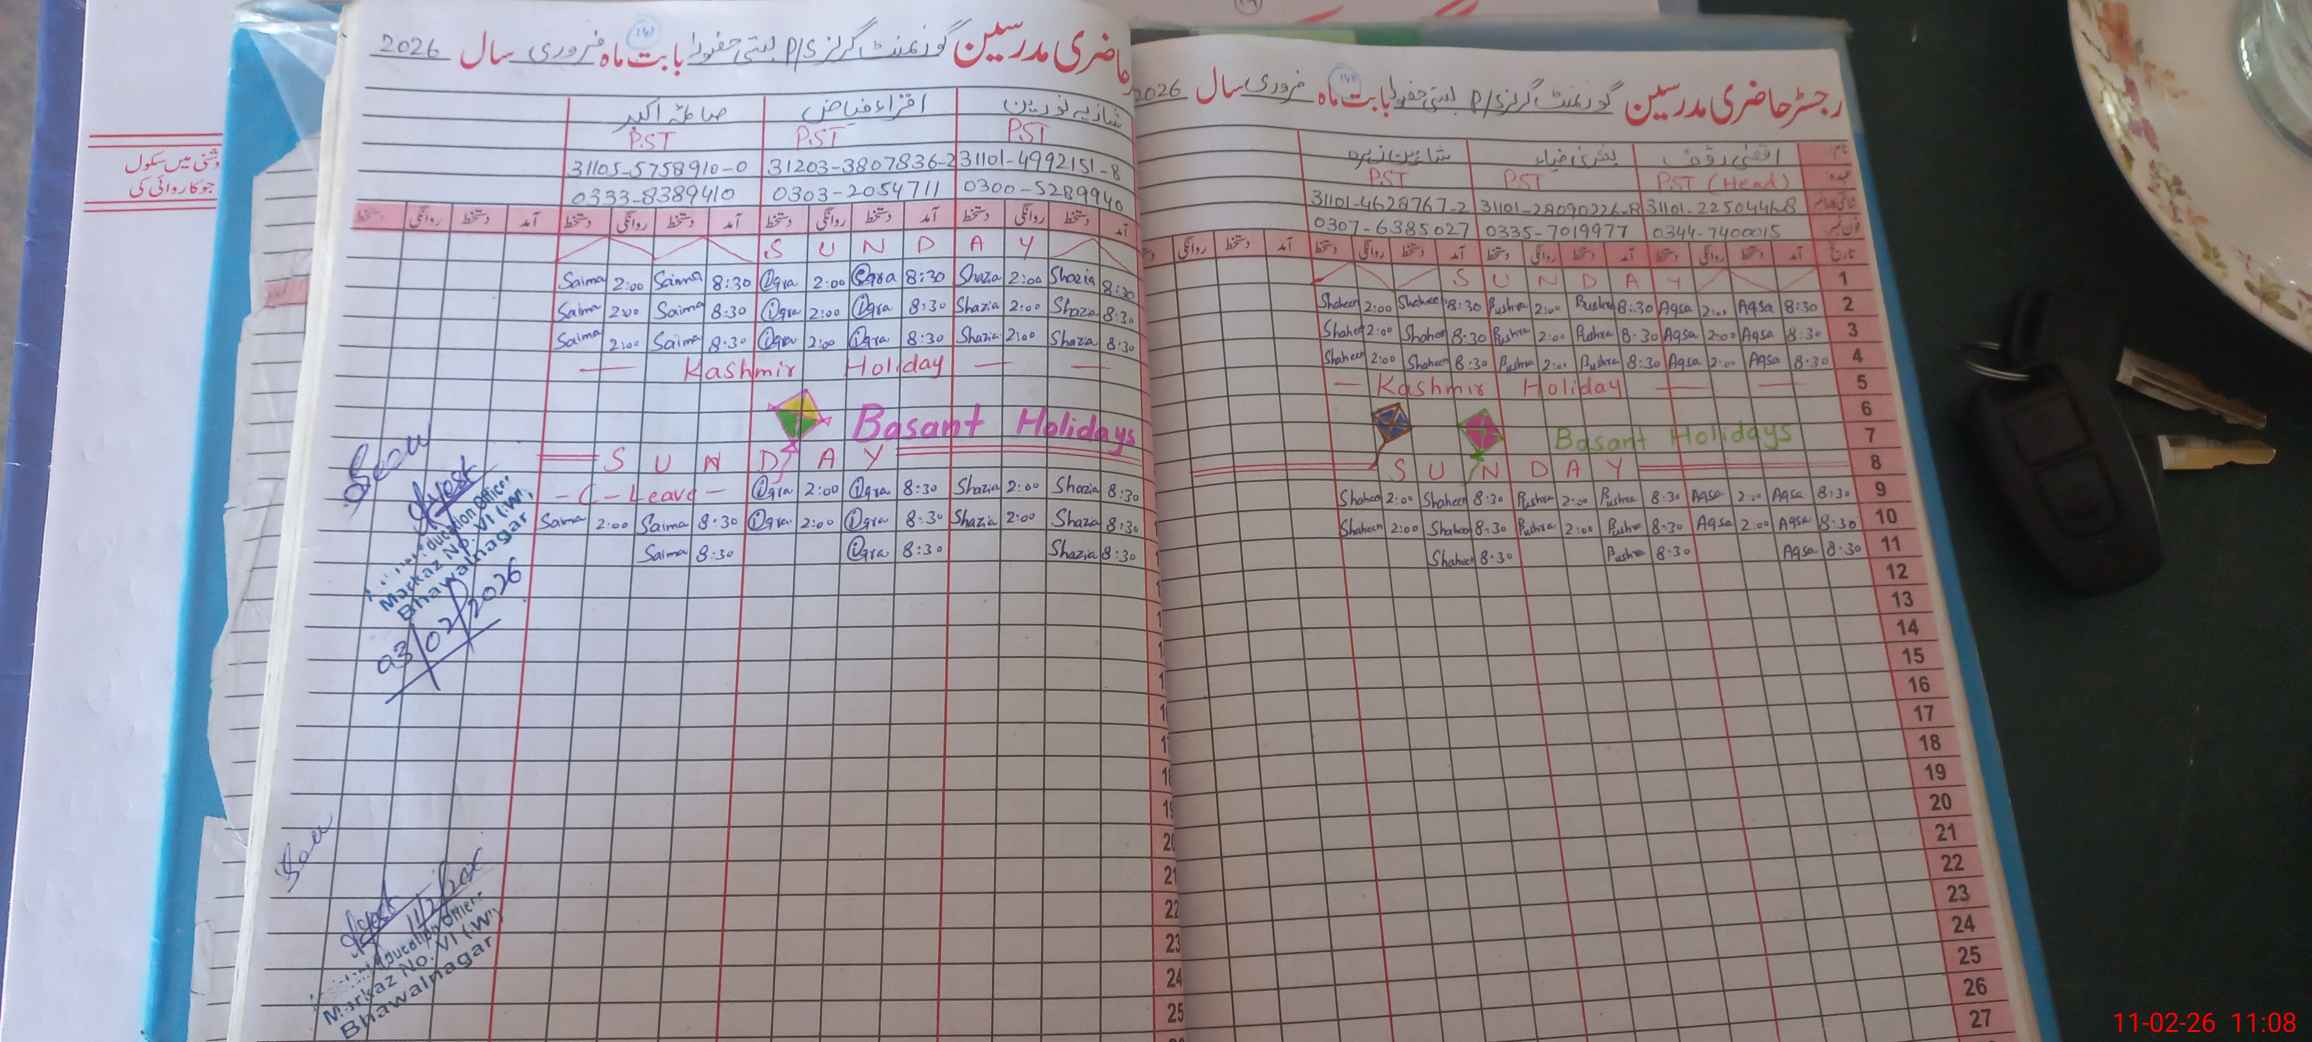 رجسٹر حاضری مدرسین گورنمنٹ گرلز P/S بستی حفوظ بابت ماہ فروری سال 2026
نام اقصٰی رؤف بشریٰ ضیاء شاہین زہرہ
عہدہ PST (Head) PST PST
31101-22504468 31101-28090226-8 31101-4628767-2
فون نمبر 0344-7400015 0335-7019977 0307-6385027
تاریخ آمد دستخط روانگی دستخط آمد دستخط روانگی دستخط آمد دستخط روانگی دستخط آمد دستخط روانگی
1 SUNDAY
2 8:30 Aqsa 2:00 Aqsa 8:30 Bushra 2:00 Bushra 8:30 Shaheen 2:00 Shaheen
3 8:30 Aqsa 2:00 Aqsa 8:30 Bushra 2:00 Bushra 8:30 Shaheen 2:00 Shaheen
4 8:30 Aqsa 2:00 Aqsa 8:30 Bushra 2:00 Bushra 8:30 Shaheen 2:00 Shaheen
5 — Kashmir Holiday — —
6
7 Basant Holidays
8 SUNDAY
9 8:30 Aqsa 2:00 Aqsa 8:30 Bushra 2:00 Bushra 8:30 Shaheen 2:00 Shaheen
10 8:30 Aqsa 2:00 Aqsa 8:30 Bushra 2:00 Bushra 8:30 Shaheen 2:00 Shaheen
11 8:30 Aqsa 8:30 Bushra 8:30 Shaheen
12
13
14
15
16
17
18
19
20
21
22
23
24
25
26
27
حاضری مدرسین گورنمنٹ گرلز P/S بستی حفوظ بابت ماہ فروری سال 2026
شازیہ نورین اقراء فیاض صائمہ اکبر
PST PST PST
31101-4992151-8 31203-3807836-2 31105-5758910-0
0300-5289940 0303-2054711 0333-8389410
آمد دستخط روانگی دستخط آمد دستخط روانگی دستخط آمد دستخط روانگی دستخط آمد دستخط روانگی دستخط
SUNDAY
8:30 Shazia 2:00 Shazia 8:30 Iqra 2:00 Iqra 8:30 Saima 2:00 Saima
8:30 Shazia 2:00 Shazia 8:30 Iqra 2:00 Iqra 8:30 Saima 2:00 Saima
8:30 Shazia 2:00 Shazia 8:30 Iqra 2:00 Iqra 8:30 Saima 2:00 Saima
— Kashmir Holiday — —
Basant Holidays
SUNDAY
8:30 Shazia 2:00 Shazia 8:30 Iqra 2:00 Iqra - C - Leave -
8:30 Shazia 2:00 Shazia 8:30 Iqra 2:00 Iqra 8:30 Saima 2:00 Saima
8:30 Shazia 8:30 Iqra 8:30 Saima
20
21
22
23
24
25
Seen
Education Officer
Markaz No. VI (W)
Bhawalnagar
03/02/2026
Seen
Education Officer
Markaz No. VI (W)
Bhawalnagar
میں سکول
جو کاروائی کی
11-02-26 11:08